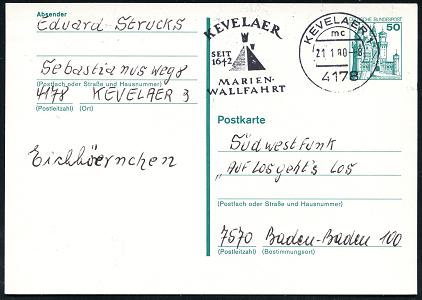 Absender
Eduard Strucks
Sebastianusweg 8
(Postfach oder Straße und Hausnummer)
4178 KEVELAER 3
(Postleitzahl) (Ort)
Eichhörnchen
KEVELAER
SEIT
1642
MARIEN-
WALLFAHRT
KEVELAER 1
mc
21.1.80-8
4178
DEUTSCHE BUNDESPOST
50
Postkarte
Südwestfunk
"AUF LOS geht's LOS
(Postfach oder Straße und Hausnummer)
7570 Baden-Baden 100
(Postleitzahl) (Bestimmungsort)